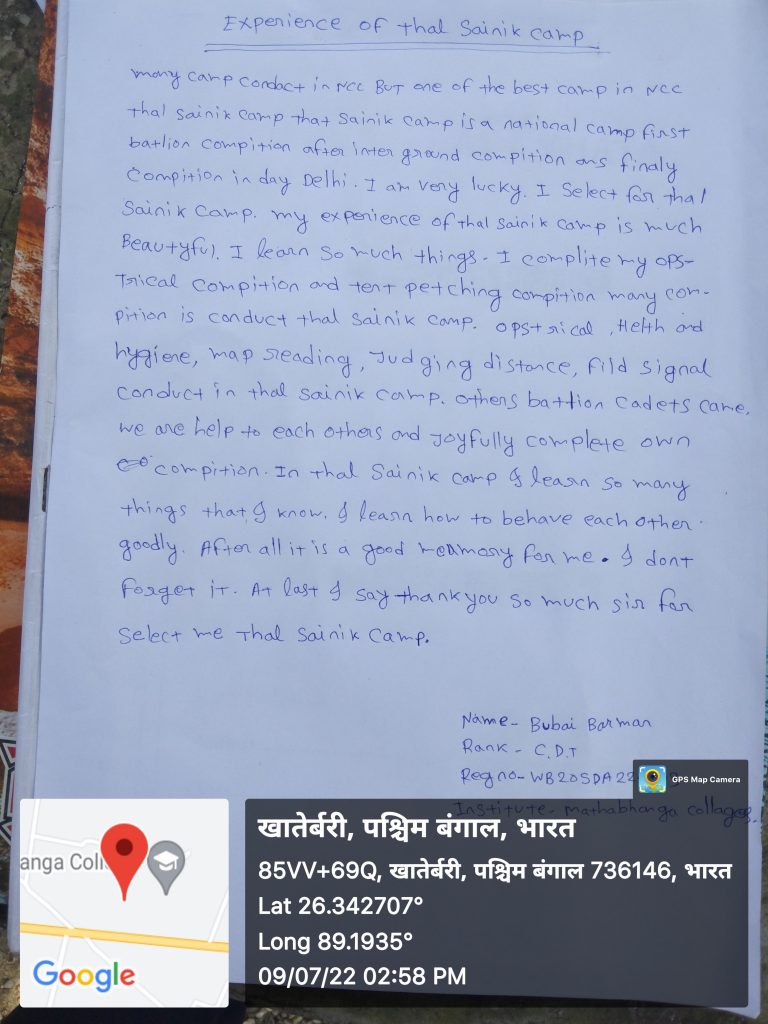 Experience of Thal Sainik Camp
many camp conduct in NCC But one of the best camp in NCC
Thal Sainik Camp that Sainik Camp is a national camp first
batlion compition after inter ground compition ans finaly
Compition in day Delhi. I am very lucky. I Select for thal
Sainik Camp. my experience of thal sainik camp is much
Beautyful. I learn so much things. I complite my ops-
Trical compition and tent petching compition many com-
pition is conduct thal sainik camp. opstrical, Helth and
hygiene, map reading, Judging distance, fild signal
conduct in thal sainik camp. others battion cadets came.
we are help to each others and Joyfully complete own
compition. In thal Sainik camp I learn so many
things that I know. I learn how to behave each other
goodly. After all it is a good memory for me. I dont
forget it. At last I say thank you so much sir for
select me Thal Sainik Camp.
Name- Bubai Barman
Rank - C.D.T
Reg no- WB20SDA22
GPS Map Camera
Institute- Mathabhanga collages.
anga Coll
खातेर्बरी, पश्चिम बंगाल, भारत
85VV+69Q, खातेर्बरी, पश्चिम बंगाल 736146, भारत
Lat 26.342707°
Long 89.1935°
09/07/22 02:58 PM
Google